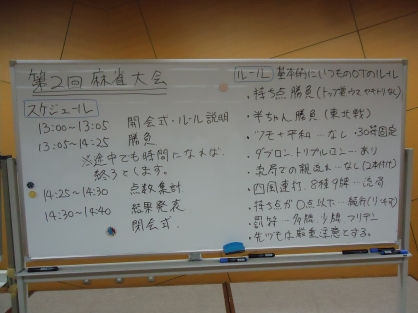 第2回 麻雀大会
スケジュール
13:00～13:05 開会式・ルール説明
13:05～14:25 勝負
※途中でも時間になれば
終うとします。
14:25～14:30 点数集計
14:30～14:40 結果発表
閉会式
ルール 基本的にいつものOTのルール
・持ち点勝負(トップ賞
・半ちゃん勝負(東北戦)
・ツモ+平和…なし・30符固定
・ダブロン・トリプルロン…あり
・流局での親流れ…なし(2本付け)
・四風連打、8種9牌…流局
・持ち点が0点以下…続行
・罰符…多牌、少牌、フリテン
・先ヅモは厳重注意とする。